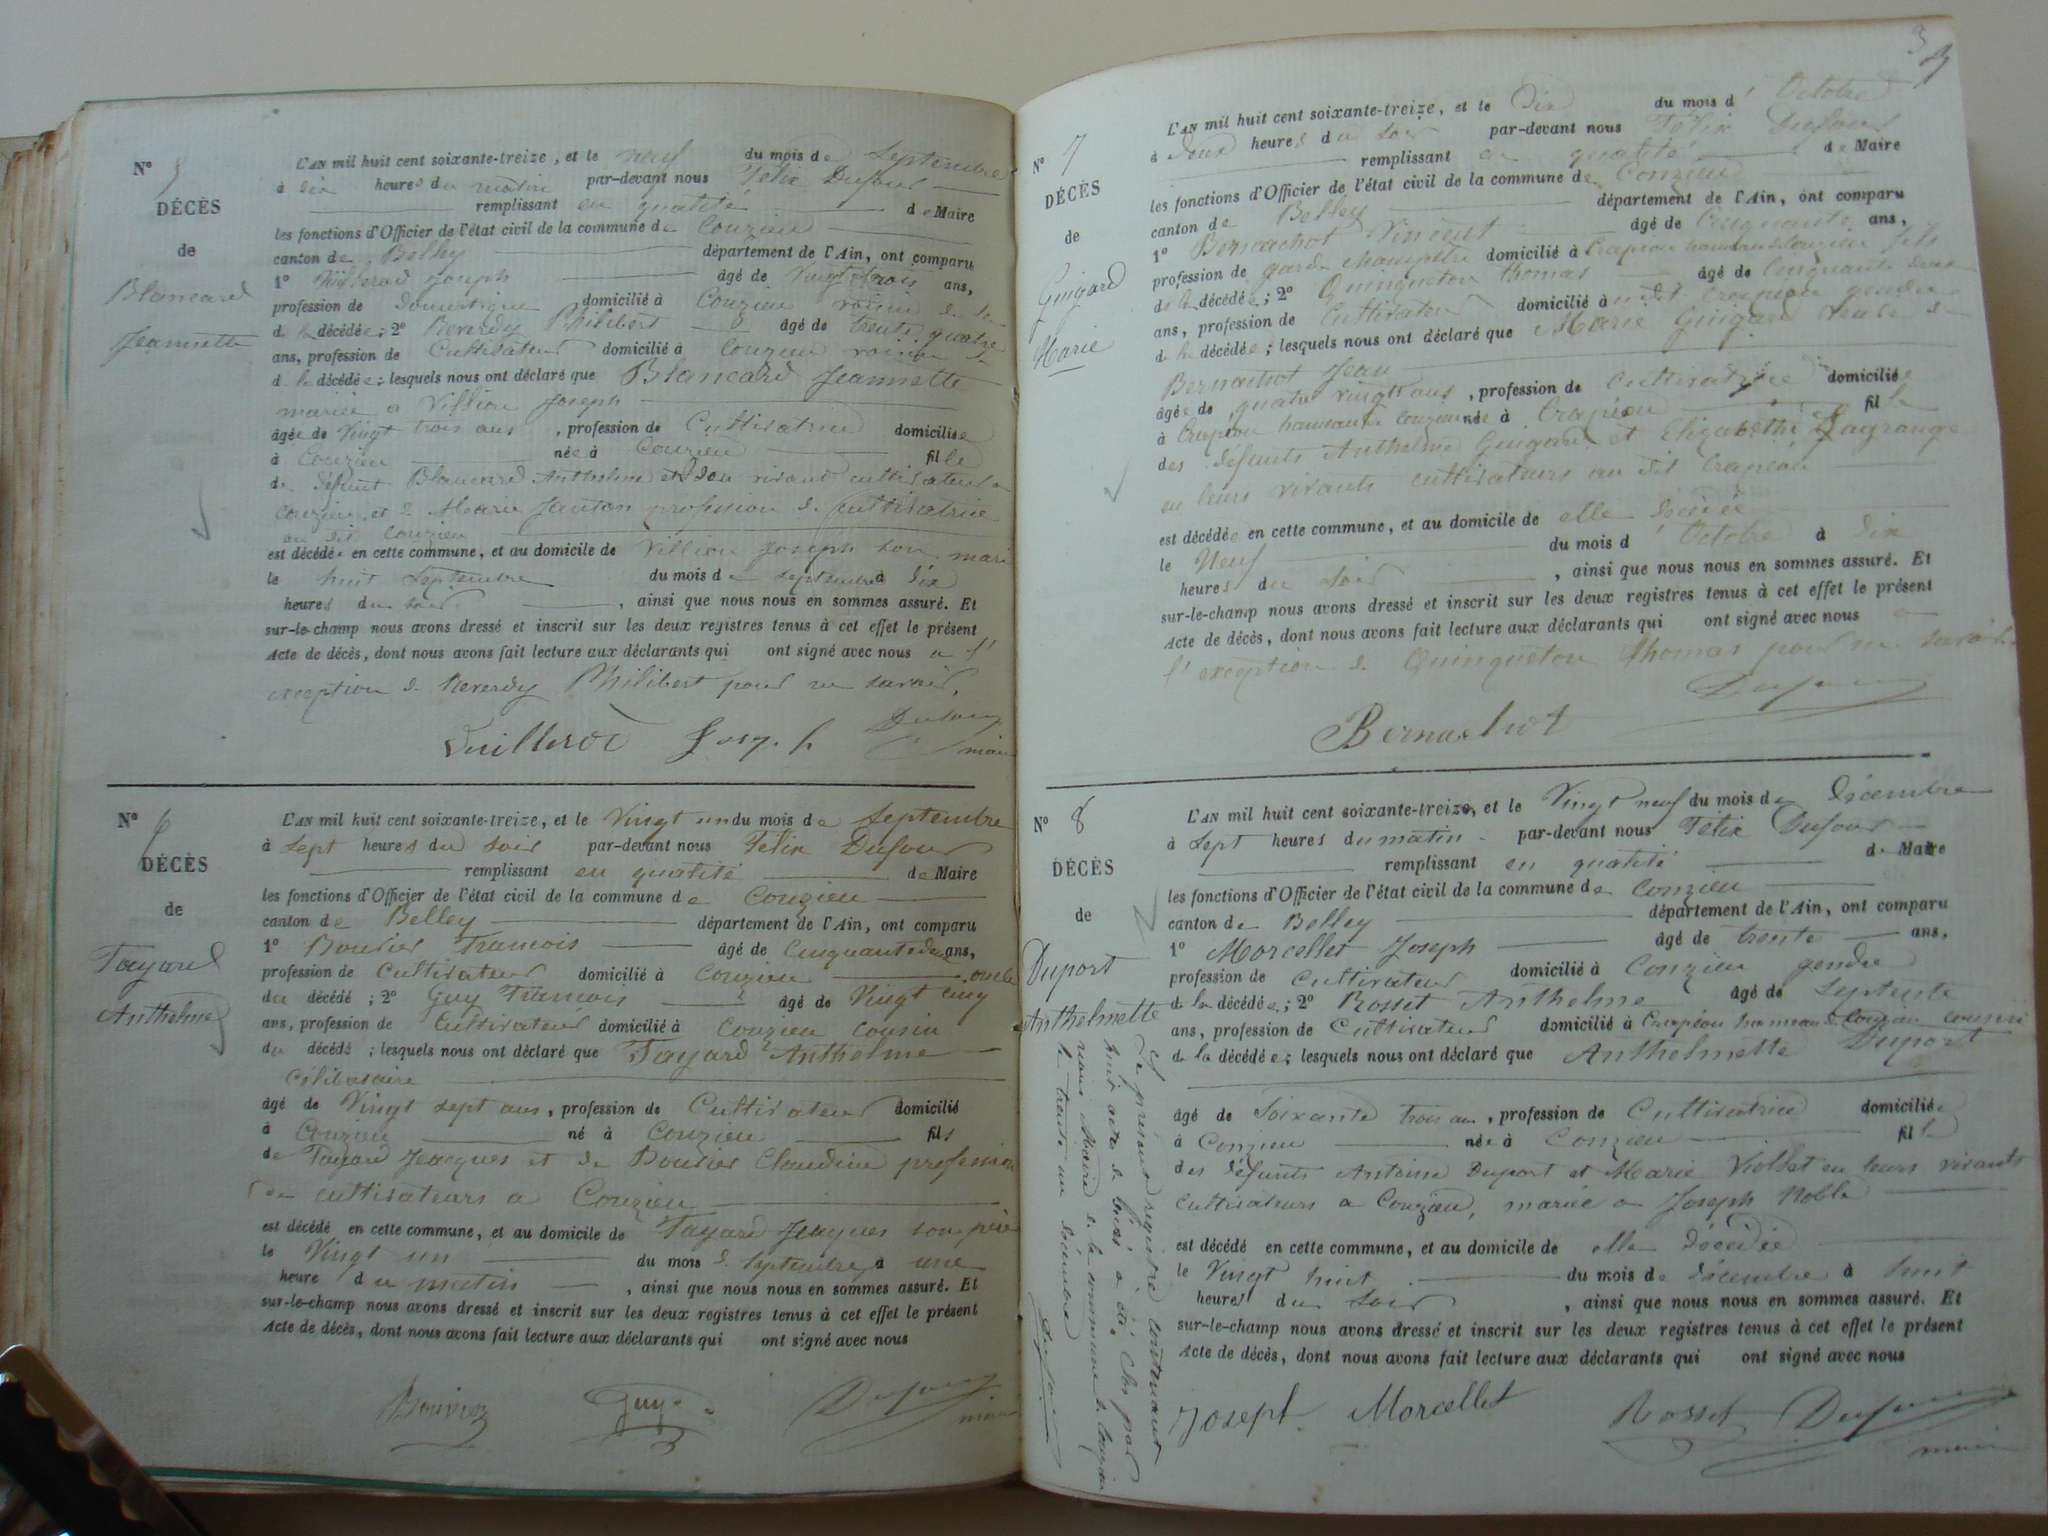 N° 5
DÉCÈS
de
Blancard
Jeannette
L'AN mil huit cent soixante-treize, et le neuf du mois de Septembre
à dix heures du matin par-devant nous Félix Dufour
remplissant en qualité de Maire
les fonctions d'Officier de l'état civil de la commune de Conzieu
canton de Belley département de l'Ain, ont comparu
1° Joseph âgé de vingt trois ans,
profession de Domestique domicilié à Conzieu voisin de la
d la décédée; 2° Reverdy Philibert âgé de trente quatre
ans, profession de Cultivateur domicilié à Conzieu voisin
d la décédée; lesquels nous ont déclaré que Blancard Jeannette
mariée a Villion Joseph
âgée de Vingt trois ans, profession de Cultivatrice domiciliée
à Conzieu née à Conzieu fille
de défunt Blancard Anthelme et son vivant cultivateur a
Conzieu et de Marie Janton profession de cultivatrice
au dit Conzieu
est décédée en cette commune, et au domicile de Villion Joseph son mari
le huit Septembre du mois de septembre à dix
heures du soir, ainsi que nous nous en sommes assuré. Et
sur-le-champ nous avons dressé et inscrit sur les deux registres tenus à cet effet le présent
Acte de décès, dont nous avons fait lecture aux déclarants qui ont signé avec nous a l'
exception de Reverdy Philibert pour ne savoir.
Joseph Dufour
maire
N° 6
DÉCÈS
de
Fayard
Anthelme
L'AN mil huit cent soixante-treize, et le Vingt un du mois de Septembre
à Sept heures du soir par-devant nous Félix Dufour
remplissant en qualité de Maire
les fonctions d'Officier de l'état civil de la commune de Conzieu
canton de Belley département de l'Ain, ont comparu
1° Bouvier Francois âgé de Cinquante deux ans,
profession de Cultivateur domicilié à Conzieu oncle
du décédé; 2° Guy Francois âgé de Vingt cinq
ans, profession de Cultivateur domicilié à Conzieu cousin
du décédé; lesquels nous ont déclaré que Fayard Anthelme
Célibataire
âgé de Vingt sept ans, profession de Cultivateur domicilié
à Conzieu né à Conzieu fils
de Fayard Jeacques et de Bouvier Claudine profession
de cultivateurs a Conzieu
est décédé en cette commune, et au domicile de Fayard Jeacques son père
le Vingt un du mois d Septembre à une
heure du matin, ainsi que nous nous en sommes assuré. Et
sur-le-champ nous avons dressé et inscrit sur les deux registres tenus à cet effet le présent
Acte de décès, dont nous avons fait lecture aux déclarants qui ont signé avec nous
Bouvier Guy Dufour
maire
3
N° 7
DÉCÈS
de
Guigard
Marie
L'AN mil huit cent soixante-treize, et le Dix du mois d' Octobre
à Deux heures du soir par-devant nous Félix Dufour
remplissant en qualité de Maire
les fonctions d'Officier de l'état civil de la commune de Conzieu
canton de Belley département de l'Ain, ont comparu
1° Bernachot Vincent âgé de Cinquante ans,
profession de garde champêtre domicilié à Crapéou hameau de Conzieu fils
de la décédée; 2° Quinqueton Thomas âgé de Cinquante deux
ans, profession de Cultivateur domicilié à Crapéou gendre
d la décédée; lesquels nous ont déclaré que Marie Guigard Veuve de
Bernachot Jean
âgée de quatre vingt ans, profession de Cultivatrice domiciliée
à Crapéou hameau de Conzieu née à Crapéou fille
des défunts Anthelme Guigard et Elizabethe Lagrange
en leurs vivants cultivateurs au dit Crapéou
est décédée en cette commune, et au domicile de elle décédée
le Neuf du mois d' Octobre à dix
heures du soir, ainsi que nous nous en sommes assuré. Et
sur-le-champ nous avons dressé et inscrit sur les deux registres tenus à cet effet le présent
Acte de décès, dont nous avons fait lecture aux déclarants qui ont signé avec nous a
l'exception de Quinqueton Thomas pour ne savoir.
Dufour
Bernachot
N° 8
DÉCÈS
de
Duport
Anthelmette
L'AN mil huit cent soixante-treize, et le Vingt neuf du mois de Décembre
à Sept heures du matin par-devant nous Félix Dufour
remplissant en qualité de Maire
les fonctions d'Officier de l'état civil de la commune de Conzieu
canton de Belley département de l'Ain, ont comparu
1° Morcellet Joseph âgé de trente ans,
profession de Cultivateur domicilié à Conzieu gendre
de la décédée; 2° Rosset Anthelme âgé de Septente
ans, profession de Cultivateur domicilié à Crapéou hameau de Conzieu
de la décédée; lesquels nous ont déclaré que Anthelmette Duport
âgé de Soixante trois ans, profession de Cultivatrice domiciliée
à Conzieu née à Conzieu fille
des défunts Antoine Duport et Marie Viollet en leurs vivants
cultivateurs a Conzieu, mariée a Joseph Noble
est décédé en cette commune, et au domicile de elle décédée
le Vingt huit du mois de décembre à huit
heures du soir, ainsi que nous nous en sommes assuré. Et
sur-le-champ nous avons dressé et inscrit sur les deux registres tenus à cet effet le présent
Acte de décès, dont nous avons fait lecture aux déclarants qui ont signé avec nous
Joseph Morcellet Rosset Dufour
maire
Le présent registre contenant
huit actes de décès a été clos par
nous Maire de la commune de Conzieu
le trente un décembre
Dufour